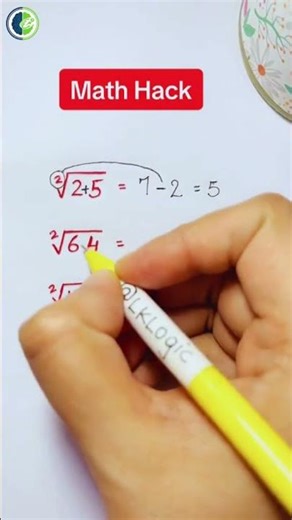 Math Hack
²√2+5 = 7-2 = 5
²√6 4 =
²√
@LKLogic